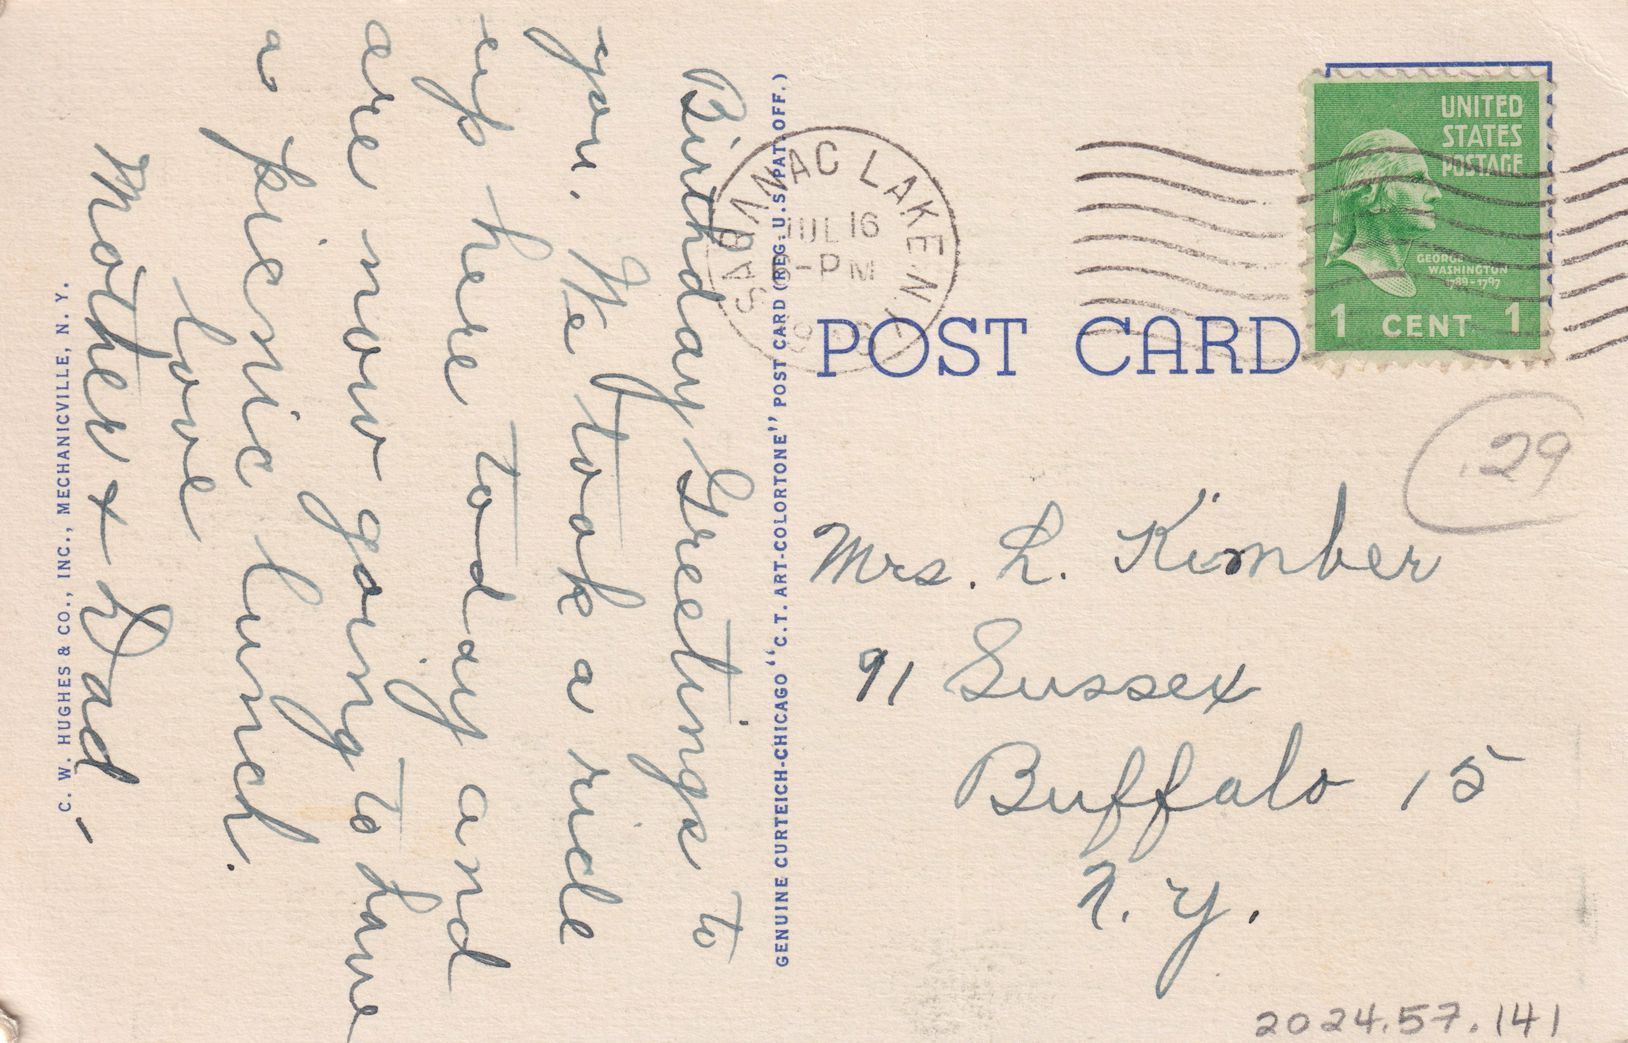 Birthday Greetings to
you. We took a ride
up here today and
are now going to have
a picnic lunch.
love
Mother + Dad -
C. W. HUGHES & CO., INC., MECHANICVILLE, N. Y.
GENUINE CURTEICH-CHICAGO "C.T. ART-COLORTONE" POST CARD (REG. U.S. PAT. OFF.)
SARANAC LAKE, N.Y.
JUL 16
-PM
UNITED
STATES
POSTAGE
GEORGE
WASHINGTON
1789-1797
1 CENT 1
POST CARD
.29
Mrs. L. Kimber
91 Sussex
Buffalo 15
N. Y.
2024.57.141